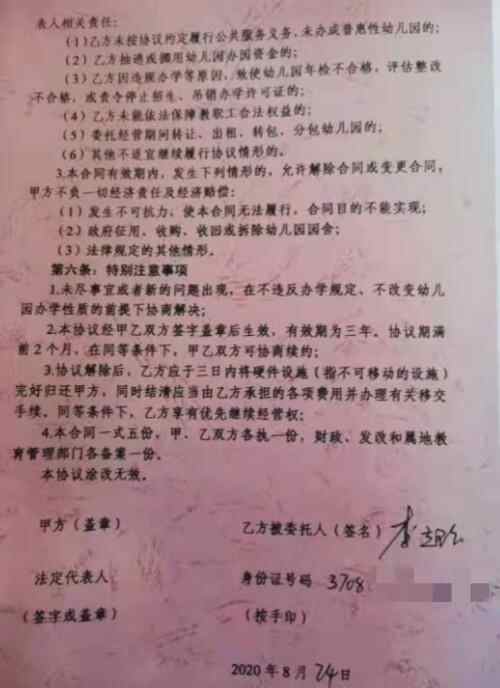 表人相关责任：
（1）乙方未按协议约定履行公共服务义务，未办成普惠性幼儿园的；
（2）乙方抽逃或挪用幼儿园办园资金的；
（3）乙方因违规办学等原因，致使幼儿园年检不合格，评估整改
不合格，或责令停止招生、吊销办学许可证的；
（4）乙方未能依法保障教职工合法权益的；
（5）委托经营期间转让、出租、转包、分包幼儿园的；
（6）其他不适宜继续履行协议情形的。
3.本合同有效期内，发生下列情形的，允许解除合同或变更合同，
甲方不负一切经济责任及经济赔偿：
（1）发生不可抗力，使本合同无法履行，合同目的不能实现；
（2）政府征用、收购、收回或拆除幼儿园园舍；
（3）法律规定的其他情形。
第六条：特别注意事项
1.未尽事宜或者新的问题出现，在不违反办学规定、不改变幼儿
园办学性质的前提下协商解决；
2.本协议经甲乙双方签字盖章后生效，有效期为三年。协议期满
前2个月，在同等条件下，甲乙双方可协商续约；
3.协议解除后，乙方应于三日内将硬件设施（指不可移动的设施）
完好归还甲方，同时结清应当由乙方承担的各项费用并办理有关移交
手续。同等条件下，乙方享有优先继续经营权；
4.本合同一式五份，甲、乙双方各执一份，财政、发改和属地教
育管理部门各备案一份。
本协议涂改无效。
甲方（盖章） 乙方被委托人（签名）李
法定代表人 身份证号码 3708
（签字或盖章） （按手印）
2020年8月24日